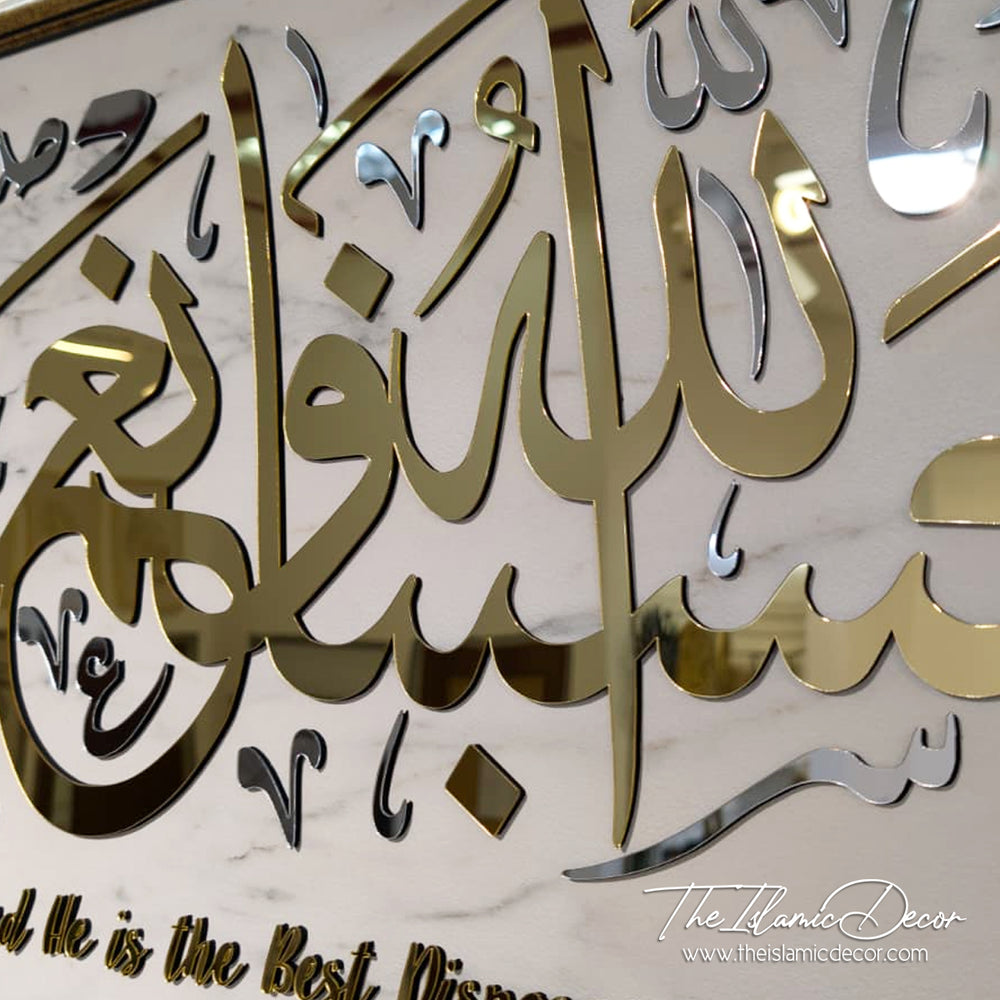 حسبنا الله ونعم
He is the Best
The Islamic Decor
www.theislamicdecor.com